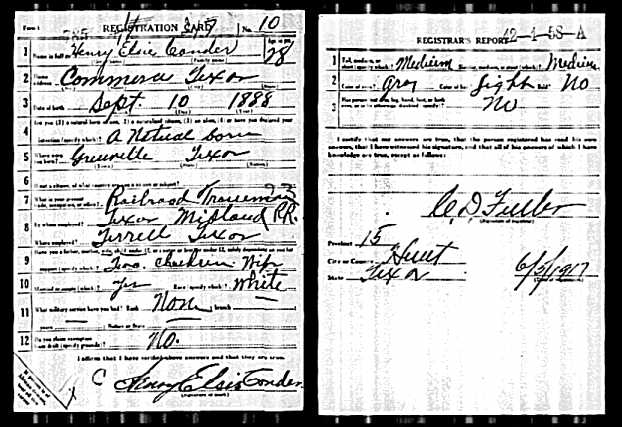 Form 1
REGISTRATION CARD
No. 10
1 Name in full Henry Elsie Conder
Age, in yrs. 28
2 Home address Commerce Texas
3 Date of birth Sept. 10 1888
4 Are you (1) a natural born citizen, (2) a naturalized citizen, (3) an alien, (4) or have you declared your
intention (specify which)? A Natural born
5 Where were you born? Greenville Texas
6 If not a citizen, of what country are you a citizen or subject?
7 What is your present trade, occupation, or office? Railroad Trainman 23
8 By whom employed? Texas Midland R.R.
Where employed? Terrell Texas
9 Have you a father, mother, wife, child under 12, or a sister or brother under 12, solely dependent on you for
support (specify which)? Two children Wife
10 Married or single (which)? Yes Race (specify which)? White
11 What military service have you had? Rank None branch
years Nation or State
12 Do you claim exemption from draft (specify grounds)? No.
I affirm that I have verified above answers and that they are true.
Henry Elsie Conder
(Signature or mark)
REGISTRAR'S REPORT 42-1-58-A
1 Tall, medium, or short (specify which)? Medium Slender, medium, or stout (which)? Medium
2 Color of eyes? Gray Color of hair? Light Bald? No
3 Has person lost arm, leg, hand, foot, or both
eyes, or is he otherwise disabled (specify)? No
I certify that my answers are true, that the person registered has read his own
answers, that I have witnessed his signature, and that all of his answers of which I have
knowledge are true, except as follows:
C D Fuller
(Signature of registrar)
Precinct 15
City or County Hunt
State Texas
6/5/1917